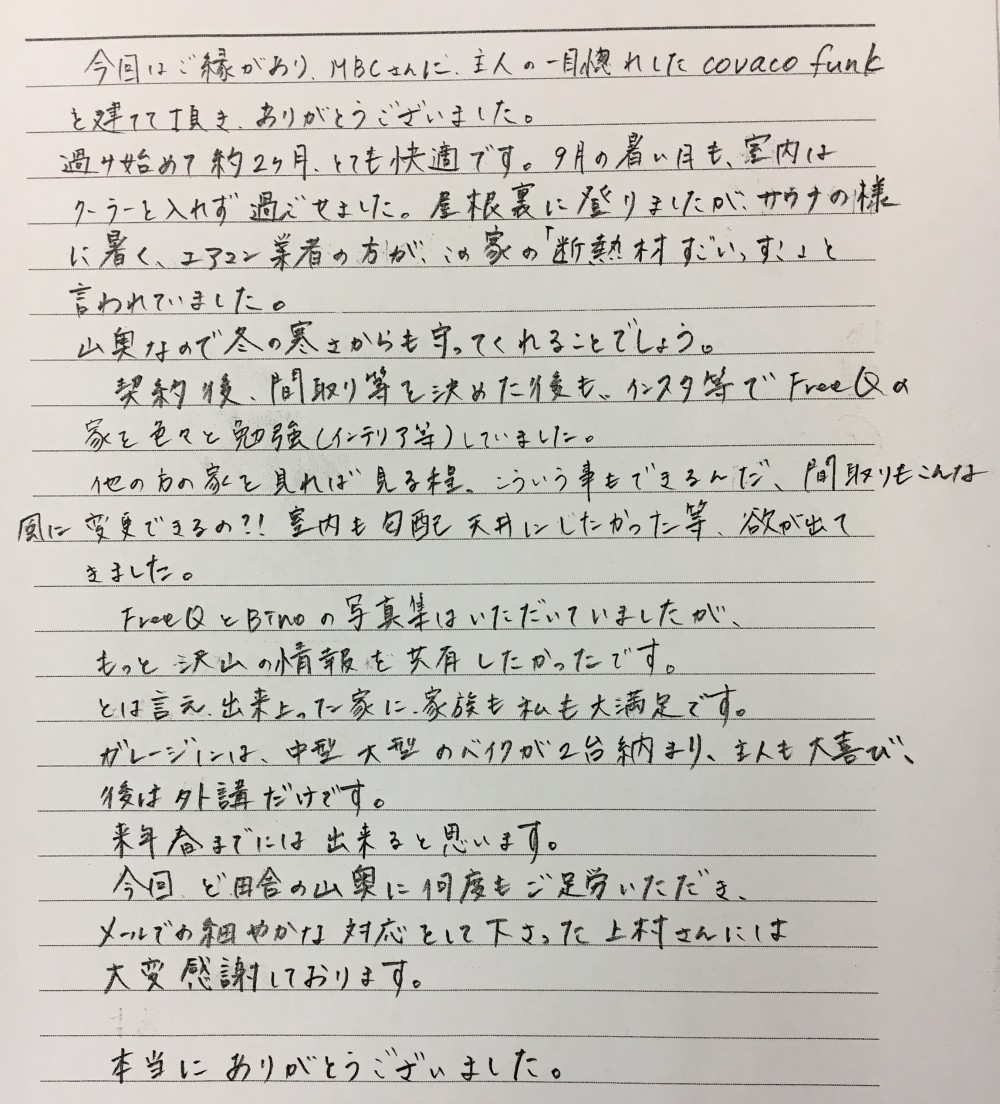 今回はご縁があり、MBCさんに、主人の一目惚れした covaco funk
を建てて頂き、ありがとうございました。
過ケ始めて約2ヶ月、とても快適です。9月の暑い日も、室内は
クーラーを入れず過ごせました。屋根裏に登りましたが、サウナの様
に暑く、エアコン業者の方が、この家の「断熱材すごいっす!」と
言われていました。
山奥なので冬の寒さからも守ってくれることでしょう。
契約後、間取り等を決めた後も、インスタ等でFreeQの
家を色々と勉強(インテリア等)していました。
他の方の家を見れば見る程、こういう事もできるんだ、間取りもこんな
風に変更できるの?!室内も勾配天井にしたかった等、欲が出て
きました。
FreeQとBinoの写真集はいただいていましたが、
もっと沢山の情報を共有したかったです。
とは言え、出来上った家に、家族も私も大満足です。
ガレージには、中型大型のバイクが2台納まり、主人も大喜び、
後は外講だけです。
来年春までには出来ると思います。
今回ど田舎の山奥に何度もご足労いただき、
メールでの細やかな対応をして下さった上村さんには
大変感謝しております。
本当にありがとうございました。